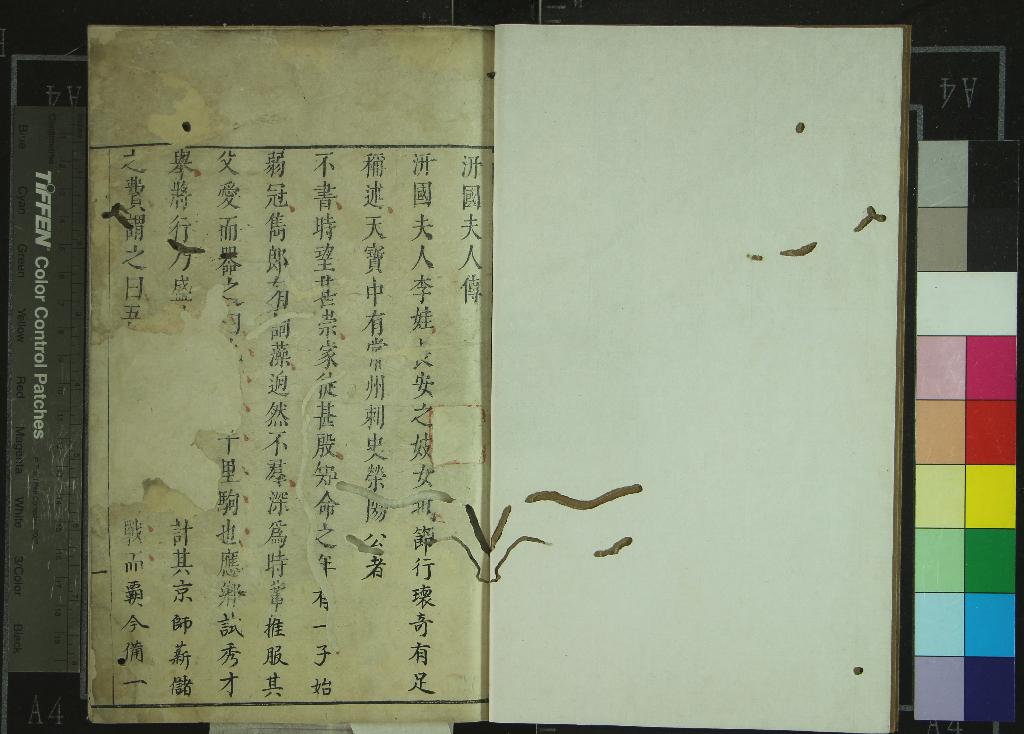 汧國夫人傳
汧國夫人李娃長安之妓女也節行瓌奇有足
稱述天寶中有常州刺史滎陽公者
不書時望甚崇家徒甚殷知命之年有一子始
弱冠雋郎有詞藻迥然不羣深爲時輩推服其
父愛而器之曰
千里駒也應鄉試秀才
舉將行乃盛
計其京師薪儲
之費謂之曰五
戰而霸今備一
TIFFEN Color Control Patches
Blue Cyan Green Yellow Red Magenta White 3/Color Black
A4
A4
A4
A4